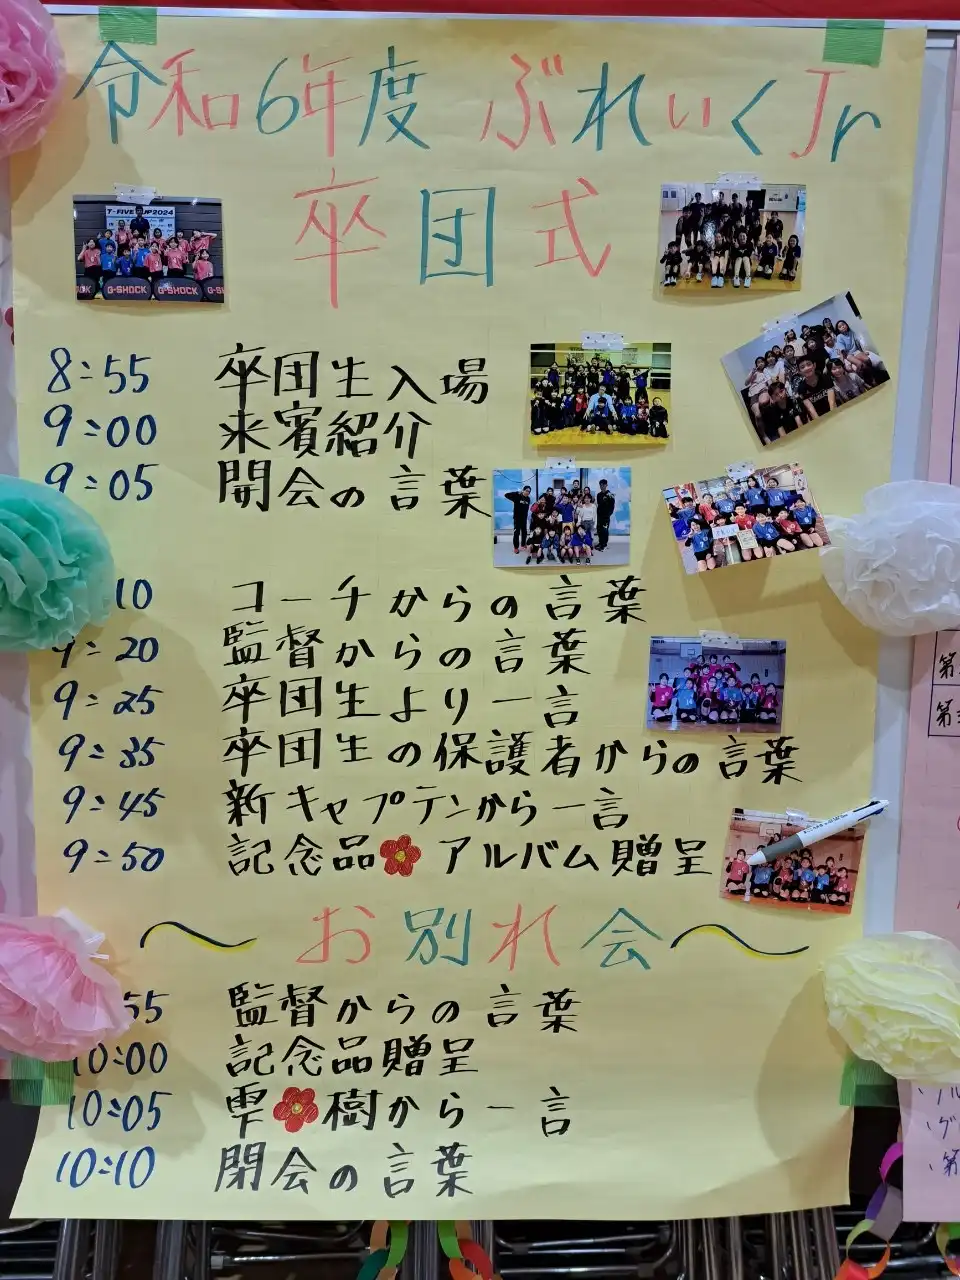 令和6年度 ぶれいくJr
卒団式
T-FIVE CUP2024
G-SHOCK G-SHOCK
8:55 卒団生入場
9:00 来賓紹介
9:05 開会の言葉
10 コーチからの言葉
9:20 監督からの言葉
9:25 卒団生より一言
9:35 卒団生の保護者からの言葉
9:45 新キャプテンから一言
9:50 記念品 アルバム贈呈
〜お別れ会〜
55 監督からの言葉
10:00 記念品贈呈
10:05 雫 樹から一言
10:10 閉会の言葉
第
第